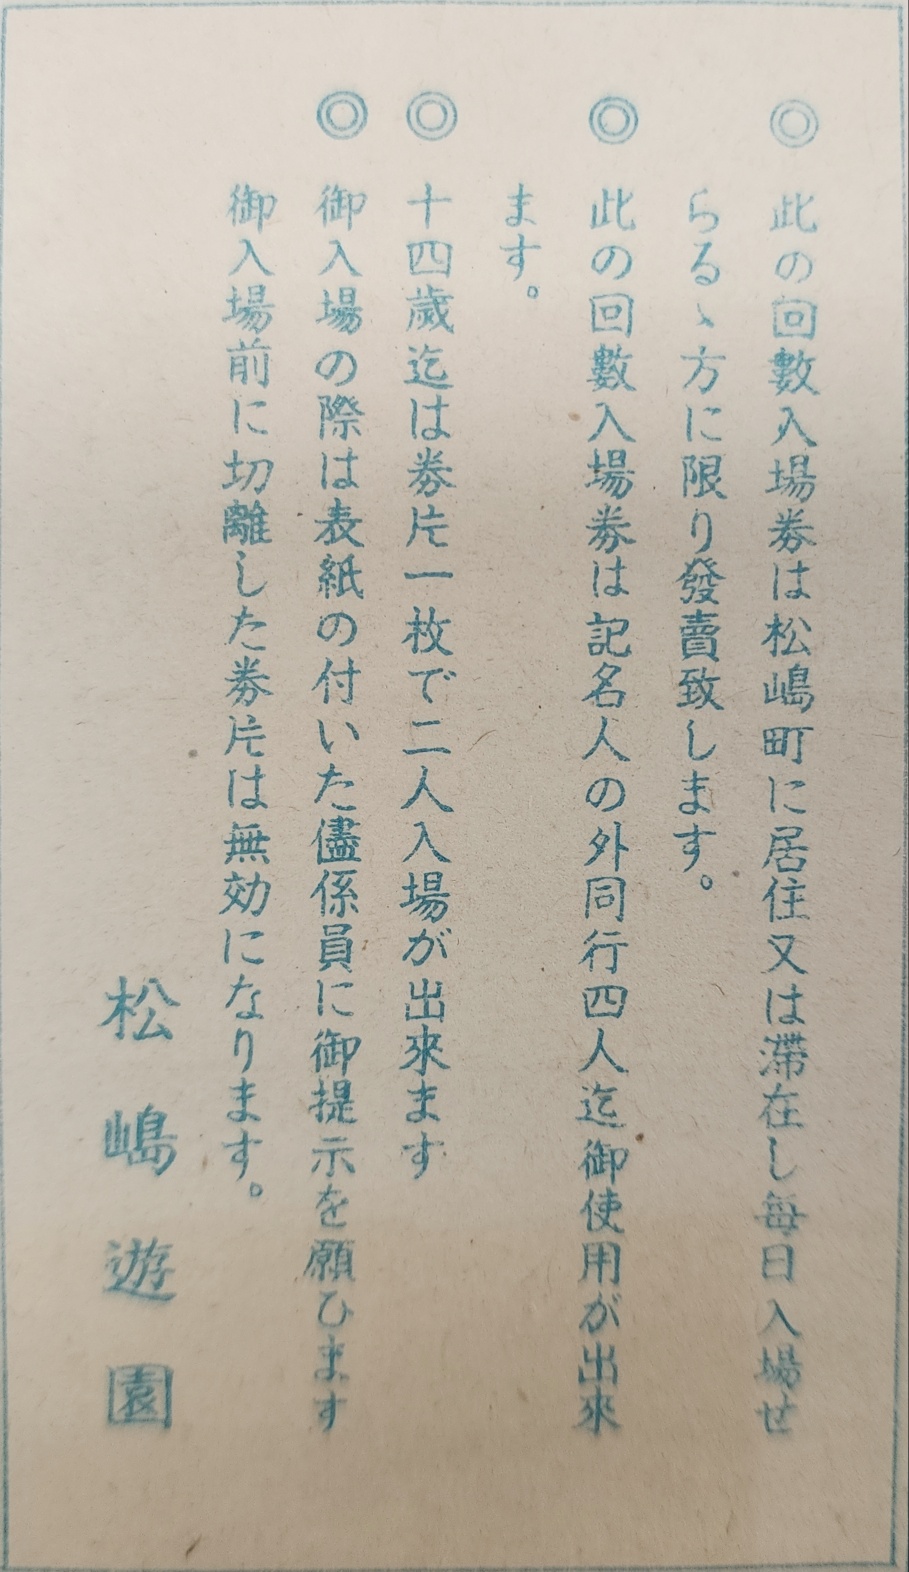 ◎此の回數入場劵は松嶋町に居住又は滯在し每日入場せ
らるゝ方に限り發賣致します。
◎此の回數入場劵は記名人の外同行四人迄御使用が出來
ます。
◎十四歲迄は劵片一枚で二人入場が出來ます
◎御入場の際は表紙の付いた儘係員に御提示を願ひます
御入場前に切離した劵片は無効になります。
松嶋遊園